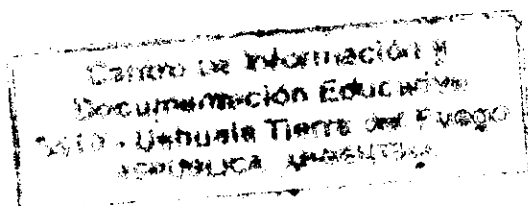 Centro de Información y
Documentación Educativa
- Ushuaia Tierra del Fuego
REPUBLICA ARGENTINA